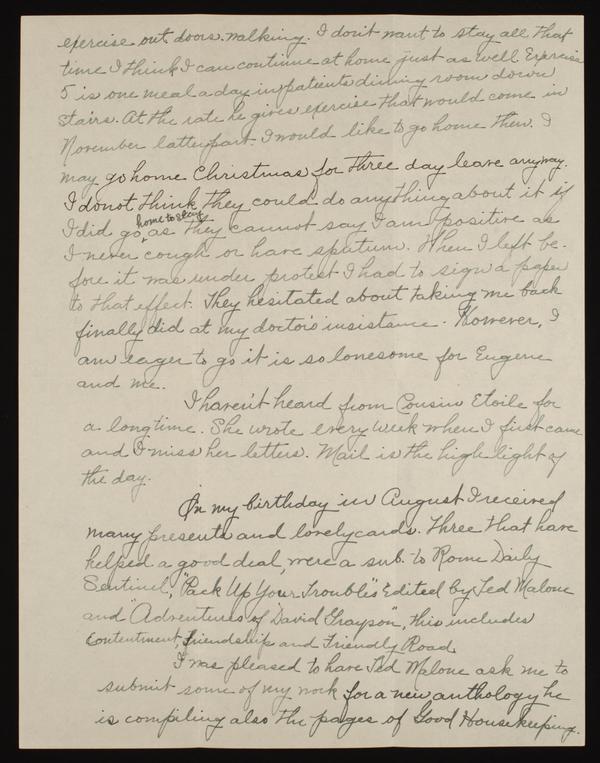 exercise out doors. walking. I don't want to stay all that
time I think I can continue at home just as well Exercise
5 is one meal a day in patients dining room down
stairs. At the rate he gives exercise that would come in
November latter part I would like to go home then. I
may go home Christmas for three day leave anyway.
I do not think they could do anything about it if
I did go home to stay as they cannot say I am positive as
I never cough or have sputum. When I left be-
fore it was under protest I had to sign a paper
to that effect. They hesitated about taking me back
finally did at my doctor's insistance. However, I
am eager to go it is so lonesome for Eugene
and me.
I haven't heard from Cousin Etoile for
a long time. She wrote every week when I first came
and I miss her letters. Mail is the high light of
the day.
On my birthday in August I received
many presents and lovely cards. Three that have
helped a good deal, were a sub. to Rome Daily
Sentinel, "Pack Up Your Troubles" Edited by Ted Malone
and "Adventures of David Grayson", this includes
Contentment, friendship and Friendly Road.
I was pleased to have Ted Malone ask me to
submit some of my work for a new anthology he
is compiling also the pages of Good Housekeeping.